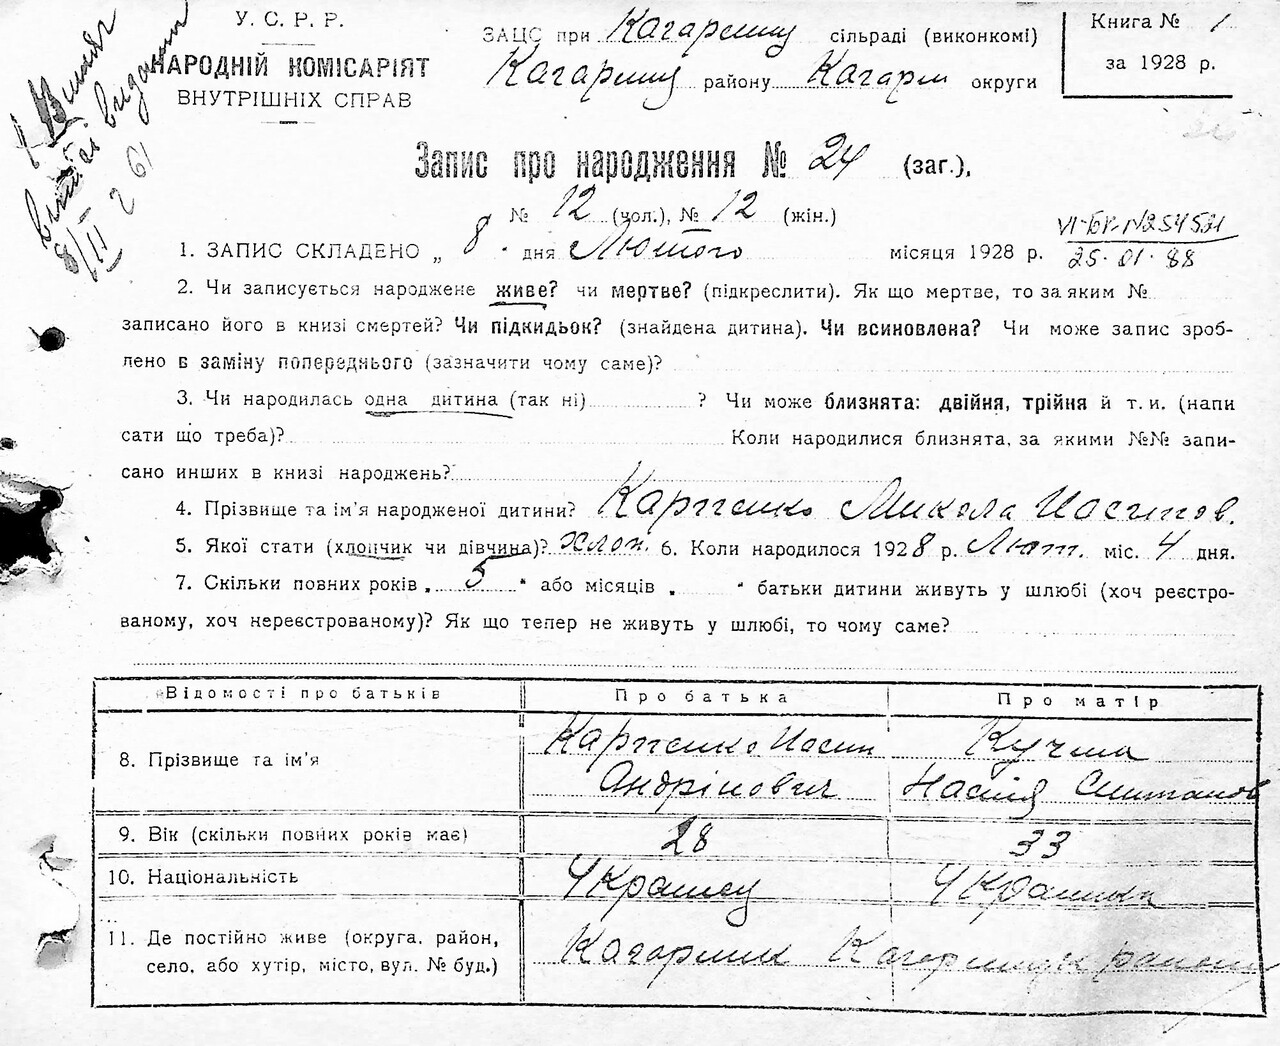 У. С. Р. Р.
НАРОДНІЙ КОМІСАРІЯТ
ВНУТРІШНІХ СПРАВ
ЗАЦС при Кагарлицу сільраді (виконкомі)
Кагарлицу району Кагарл округи
Книга № 1
за 1928 р.
8/II 61
Запис про народження № 24 (заг.),
№ 12 (чол.), № 12 (жін.)
VI-БК №254521
25.01.88
1. ЗАПИС СКЛАДЕНО „ 8 " дня Лютого місяця 1928 р.
2. Чи записується народжене живе? чи мертве? (підкреслити). Як що мертве, то за яким №
записано його в книзі смертей? Чи підкидьок? (знайдена дитина). Чи всиновлена? Чи може запис зроб-
лено в заміну попереднього (зазначити чому саме)?
3. Чи народилась одна дитина (так ні) ? Чи може близнята: двійня, трійня й т. и. (напи
сати що треба)? Коли народилися близнята, за якими №№ запи-
сано инших в книзі народжень?
4. Прізвище та ім'я народженої дитини? Карпенко Микола Иосипов.
5. Якої стати (хлопчик чи дівчина)? Хлоп. 6. Коли народилось 1928 р. Лют. міс. 4 дня.
7. Скільки повних років „ 5 " або місяців „ " батьки дитини живуть у шлюбі (хоч реєстро-
ваному, хоч нереєстрованому)? Як що тепер не живуть у шлюбі, то чому саме?
Відомості про батьків Про батька Про матір
8. Прізвище та ім'я Карпенко Иосип Кучма
Андрійович Настя
9. Вік (скільки повних років має) 28 33
10. Національність Українец Українка
11. Де постійно живе (округа, район, Кагарлик Кагарлицьк району
село, або хутір, місто, вул. № буд.)